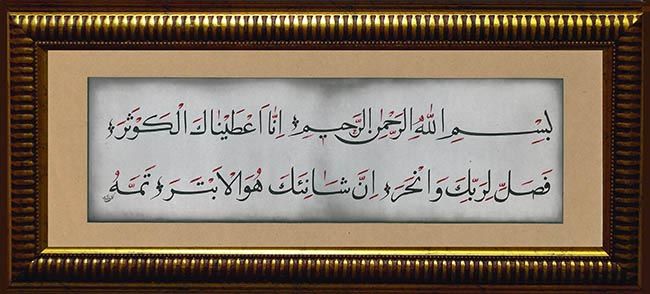 بِسْمِ اللّٰهِ الرَّحْمٰنِ الرَّحِيمِ اِنَّا اَعْطَيْنَاكَ الْكَوْثَرَ
فَصَلِّ لِرَبِّكَ وَانْحَرْ اِنَّ شَانِئَكَ هُوَ الْاَبْتَرُ تَمَّهُ